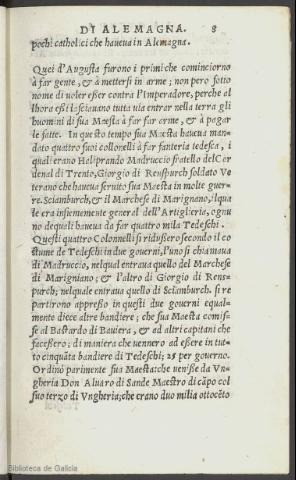 DI ALEMAGNA. 8
pochi catholici che haueua in Alemagna.
Quei d'Augusta furono i primi che cominciorno
à far gente, & à mettersi in arme; non pero sotto
nome di uoler esser contra l'Imperadore, perche al
lhora essi lasciauano tutta uia entrar nella terra gli
huomini di sua Maesta à far far arme, & à pagar
le fatte. In questo tempo sua Maesta haueua man-
dato quattro suoi collonelli à far fanteria tedesca, i
quali erano Haliprando Madruccio fratello del Car
denal di Trento, Giorgio di Renspurch soldato Ve
terano che haueua seruito sua Maesta in molte guer
re. Sciamburch, & il Marchese di Marignano, ilqua
le era insiememente general dell'Artiglieria, ognu
no dequali haueua da far quattro mila Tedeschi.
Questi quattro Colonnelli si ridussero secondo il co
stume de Tedeschi in due gouerni, l'uno si chiamaua
di Madruccio, nelqual entraua quello del Marchese
di Marigniano; & l'altro di Giorgio di Rens-
purch; nelquale entraua quello di Sciamburch. si re
partirono appresso in questi due gouerni equal-
mente diece altre bandiere; che sua Maesta comis-
se al Bastardo di Bauiera, & ad altri capitani che
facessero; di maniera che uennero ad essere in tut-
to cinquãta bandiere di Tedeschi; 25 per gouerno.
Ordinò parimente sua Maesta: che uenisse da Vn
gheria Don Aluaro di Sande Maestro di cãpo col
suo terzo di Vngheria; che erano duo milia ottocẽto
Biblioteca de Galicia